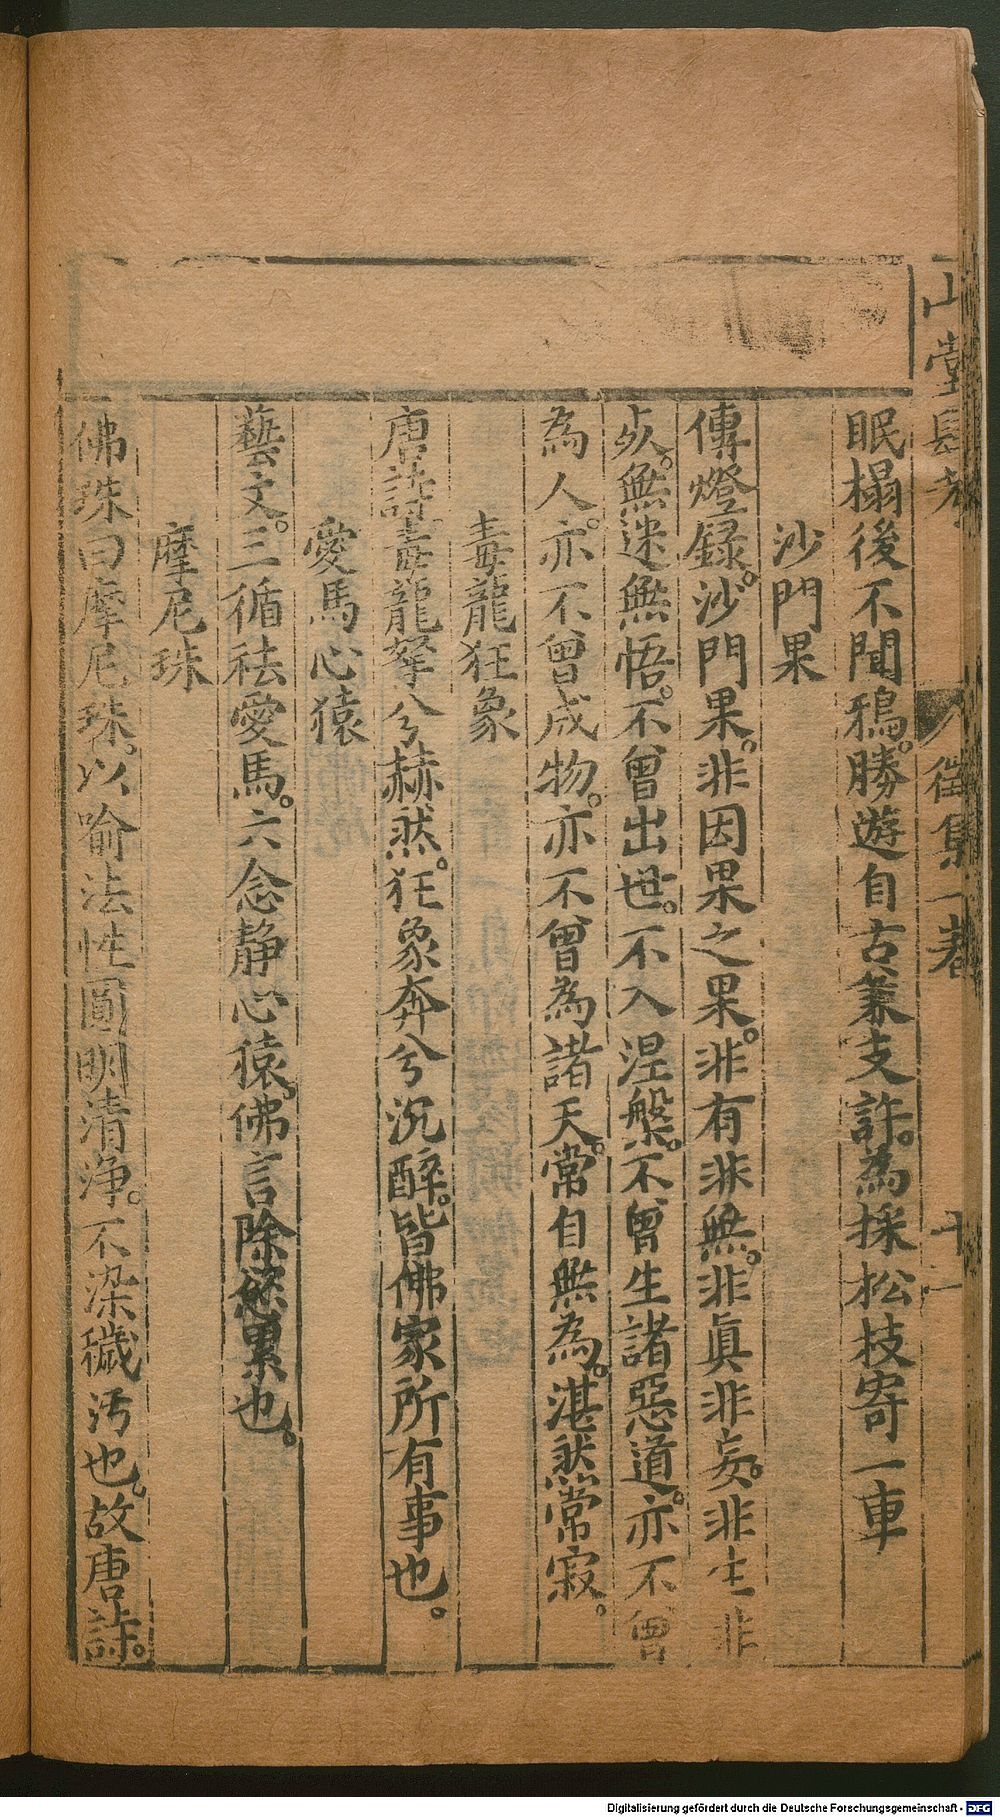 山堂肆考
徵集一卷
十一
眠榻後不聞鴉。勝遊自古兼支許。為採松枝寄一車
沙門果
傳燈錄。沙門果。非因果之果。非有非無。非眞非妄。非生非
死。無迷無悟。不曾出世。不入涅槃。不曾生諸惡道。亦不曾
為人。亦不曾成物。亦不曾為諸天。常自無為。湛然常寂。
毒龍狂象
唐詩。毒龍拏兮赫然。狂象奔兮沉醉。皆佛家所有事也。
愛馬心猿
藝文。三循祛愛馬。六念靜心猿。佛言除慾累也。
摩尼珠
佛珠曰摩尼珠。以喻法性圓明清淨。不染穢汚也。故唐詩。
Digitalisierung gefördert durch die Deutsche Forschungsgemeinschaft - DFG